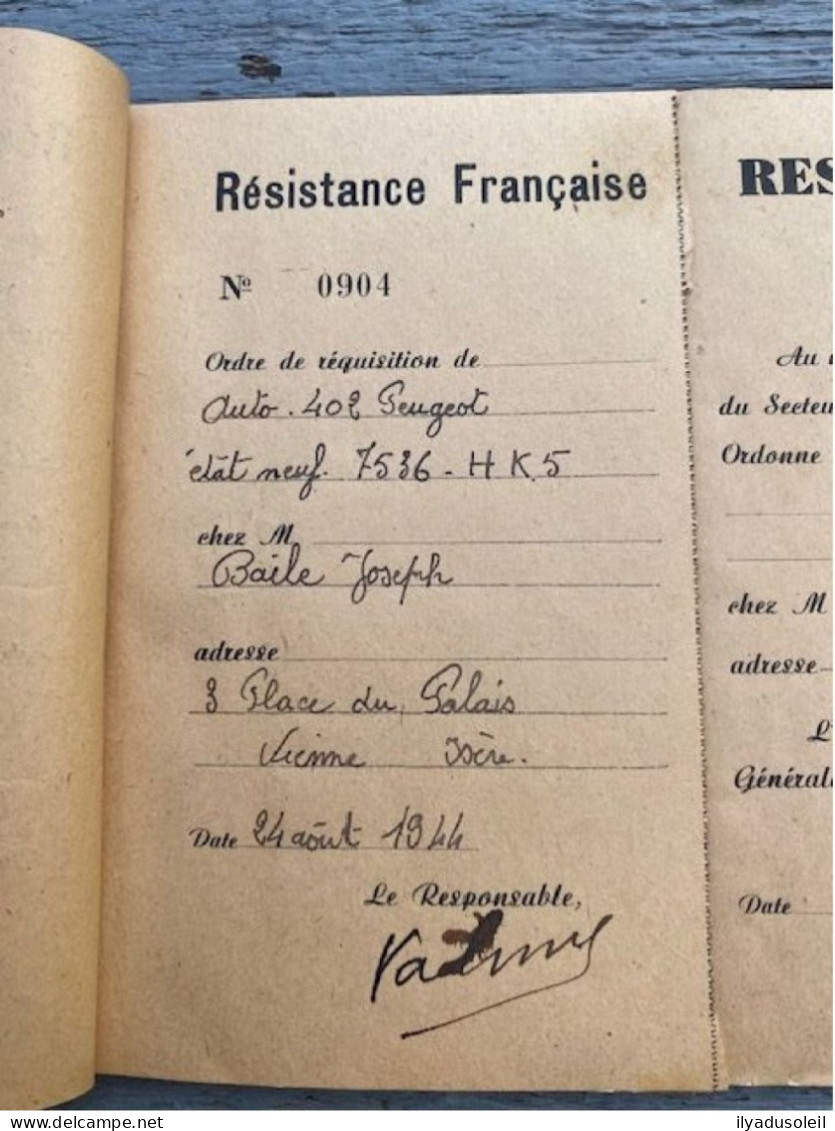 Résistance Française
Nº 0904
Ordre de réquisition de
Auto. 402 Peugeot
état neuf. 7536 - H K.5
chez M
Baile Joseph
adresse
3 Place du Palais
Vienne Isère.
Date 24 août 1944
Le Responsable,
RES
Au
du Secteu
Ordonne
chez M
adresse
L'
Générale
Date
delcampe.net
ilyadusoleil